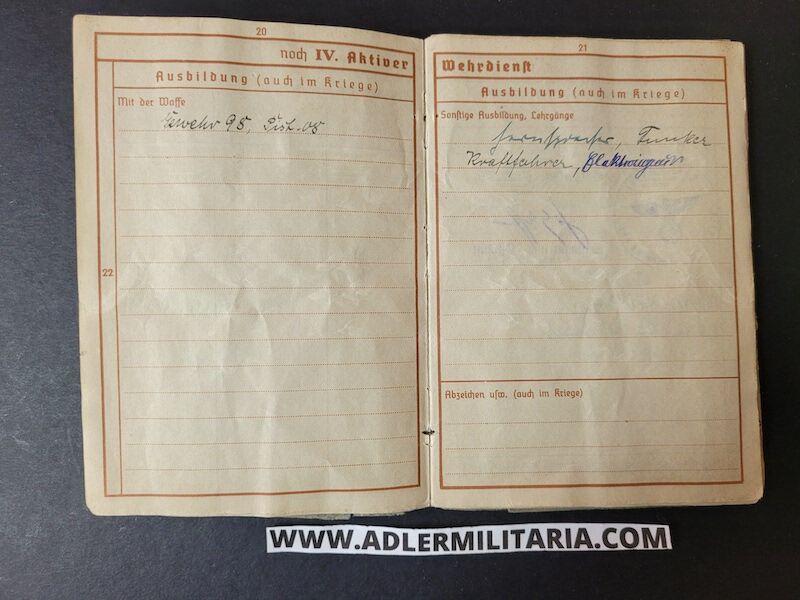 20
noch IV. Aktiver
Ausbildung (auch im Kriege)
Mit der Waffe
Gewehr 98, Pist. 08
22
21
Wehrdienst
Ausbildung (auch im Kriege)
Sonstige Ausbildung, Lehrgänge
Fernsprecher, Funker
Kraftfahrer,
Abzeichen usw. (auch im Kriege)
WWW.ADLERMILITARIA.COM